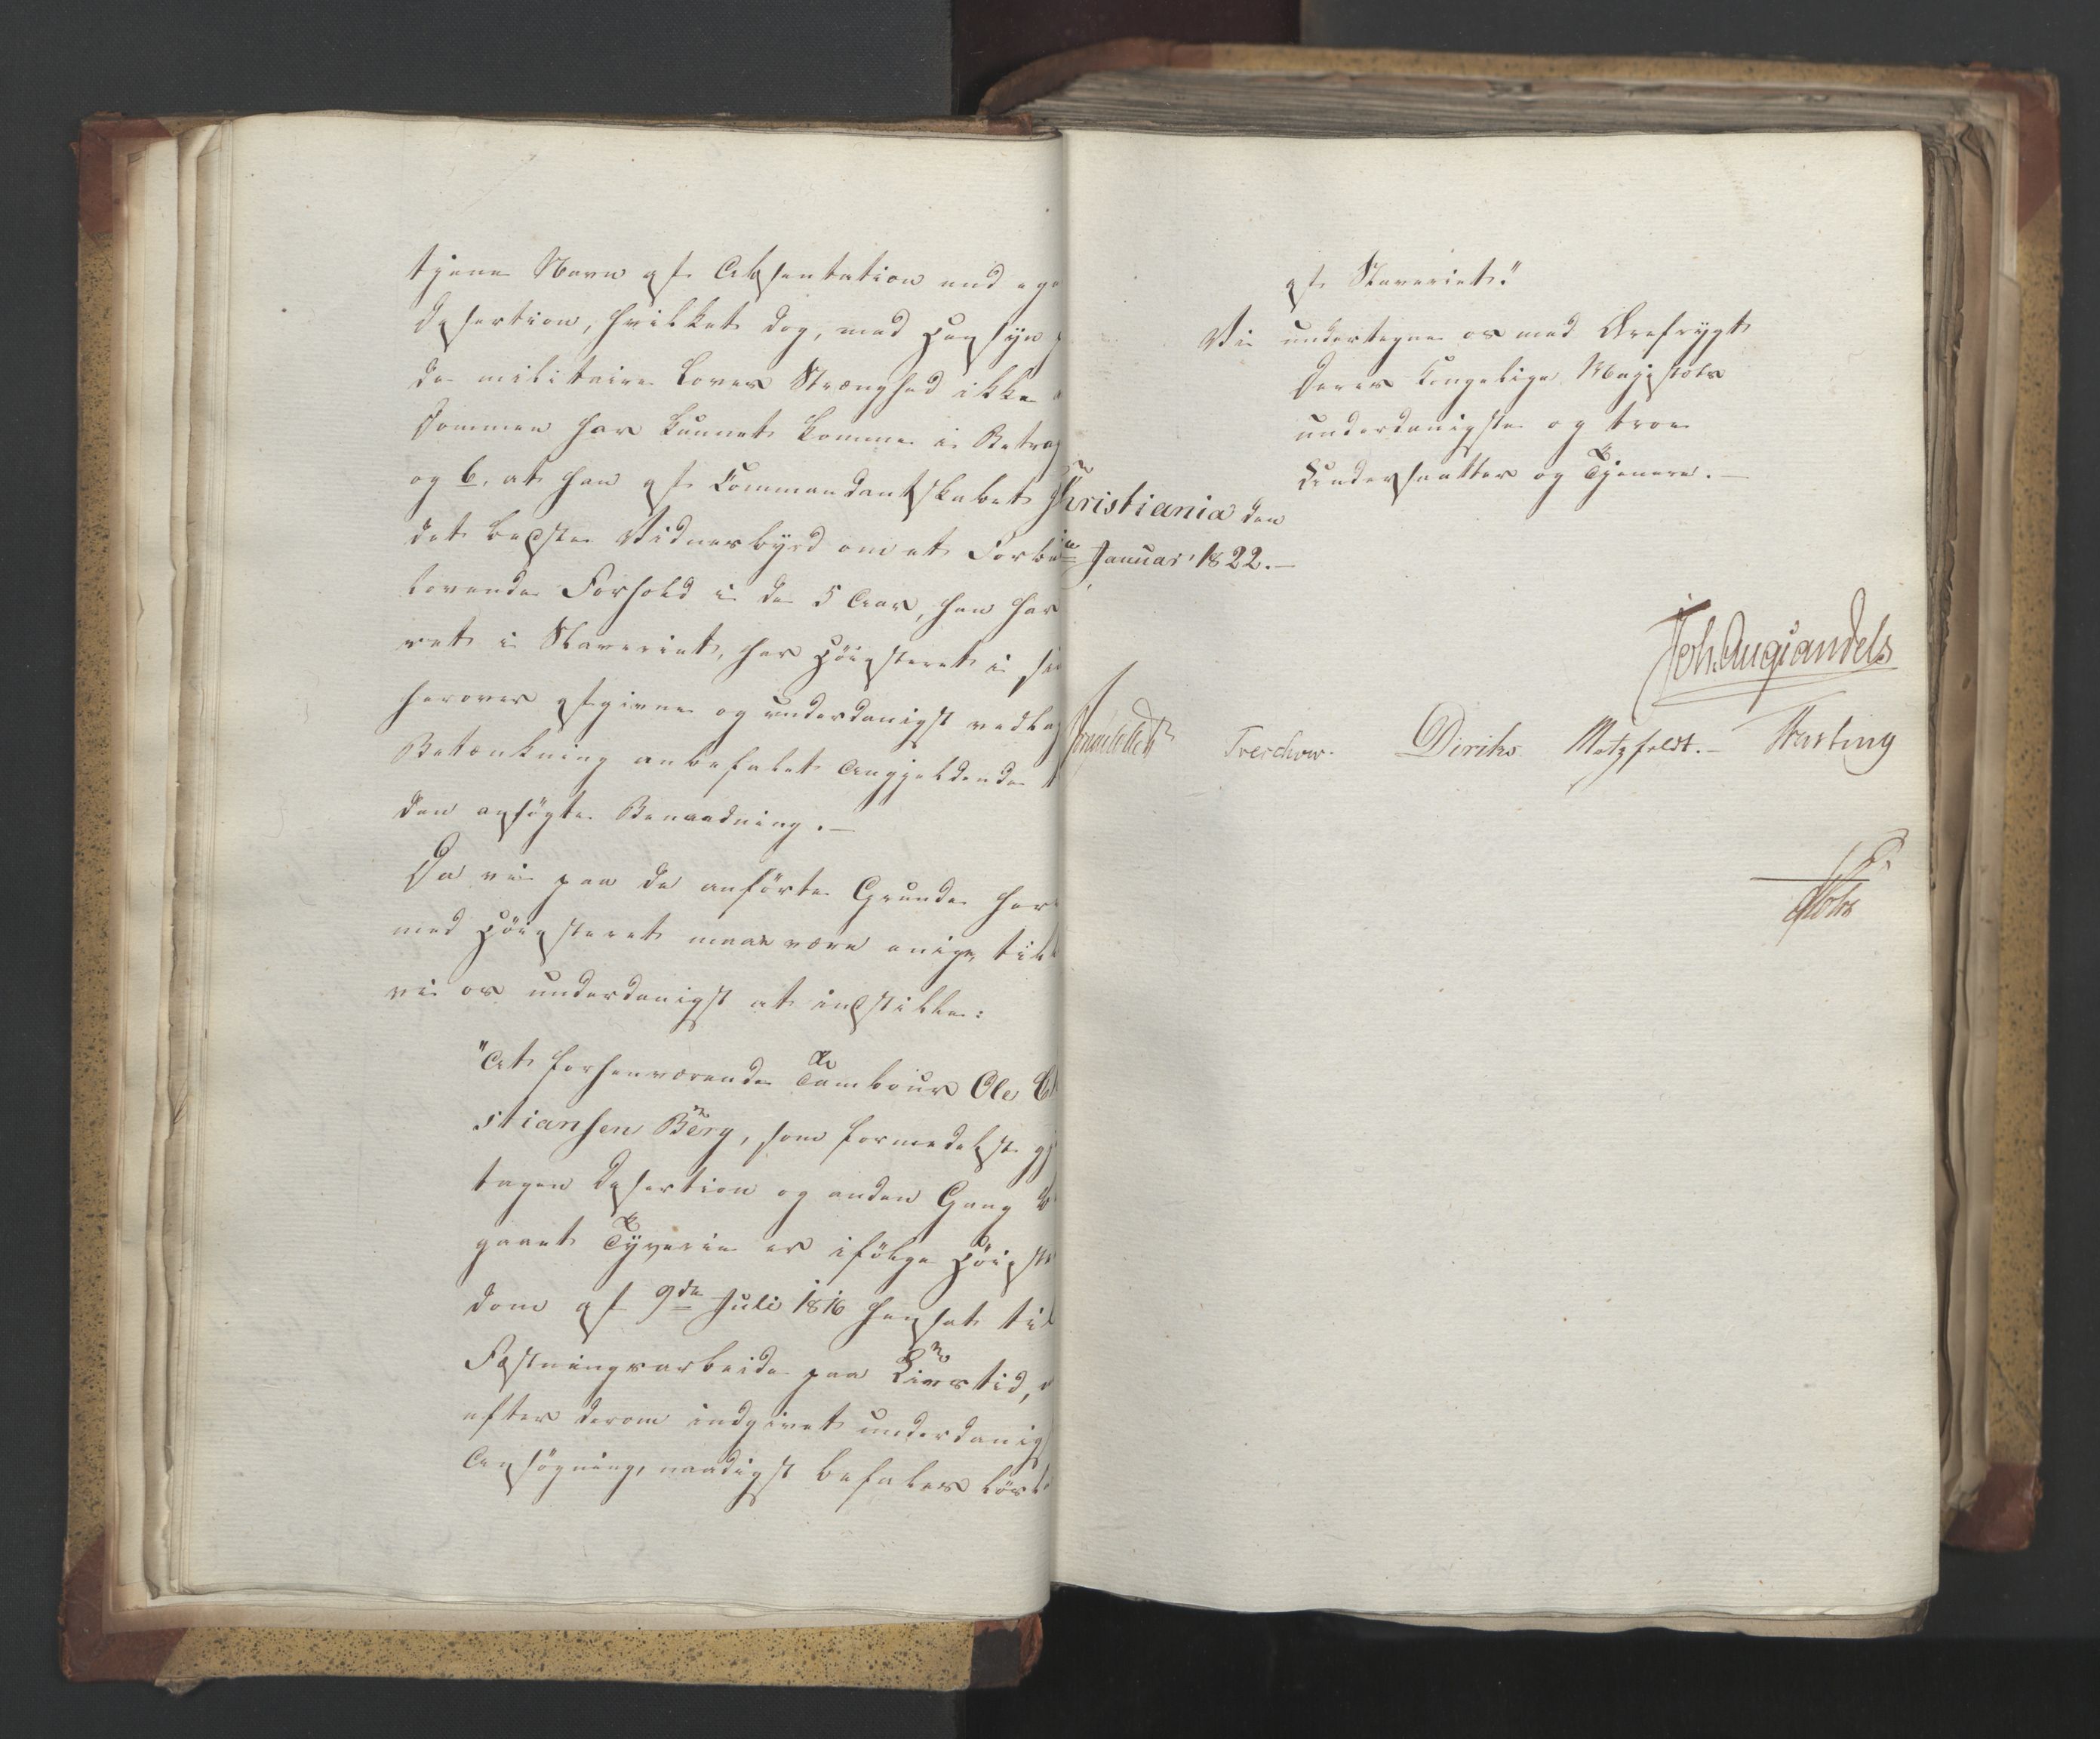 tjene Navn af Absentation end ege
Desertion, hvilket dog, med Hensyn
de militaire Loves Strænghed ikke
Dommen har kunnet komme i Betrag
og 6, at han af Commandantskabet
det bedste Vidnesbyrd om et Forbe
lovende Forhold i de 5 Aar, han har
ret i Slaveriet, har Höiesteret i sin
herover afgivne og underdanigst vedlag
Betænkning anbefalet Angjeldende t
den ansögte Benaadning.—
Da vi paa de anförte Grunde her
med Höiesteret maae være enige, till
vi os underdanigst at indstille:
"At forhenværende Tambour Ole
stiansen Berg, som formedelst gj
tagen Desertion og anden Gang
gaaet Tyverie er ifölge Höieste
dom af 9de Juli 1816 hensat til
Fæstningsarbeide paa Livstid,
efter derom indgivet underdanigst
Ansögning, naadigst befales lösl
af Slaveriet."
Vi undertegne os med Ærefrygt
Deres Kongelige Majestæts
underdanigste og troe
Undersaatter og Tjenere.—
Christiania den
Januar 1822.—
Joh. Aug. Sandels
Treschow. Diriks. Motzfeldt.— Fasting